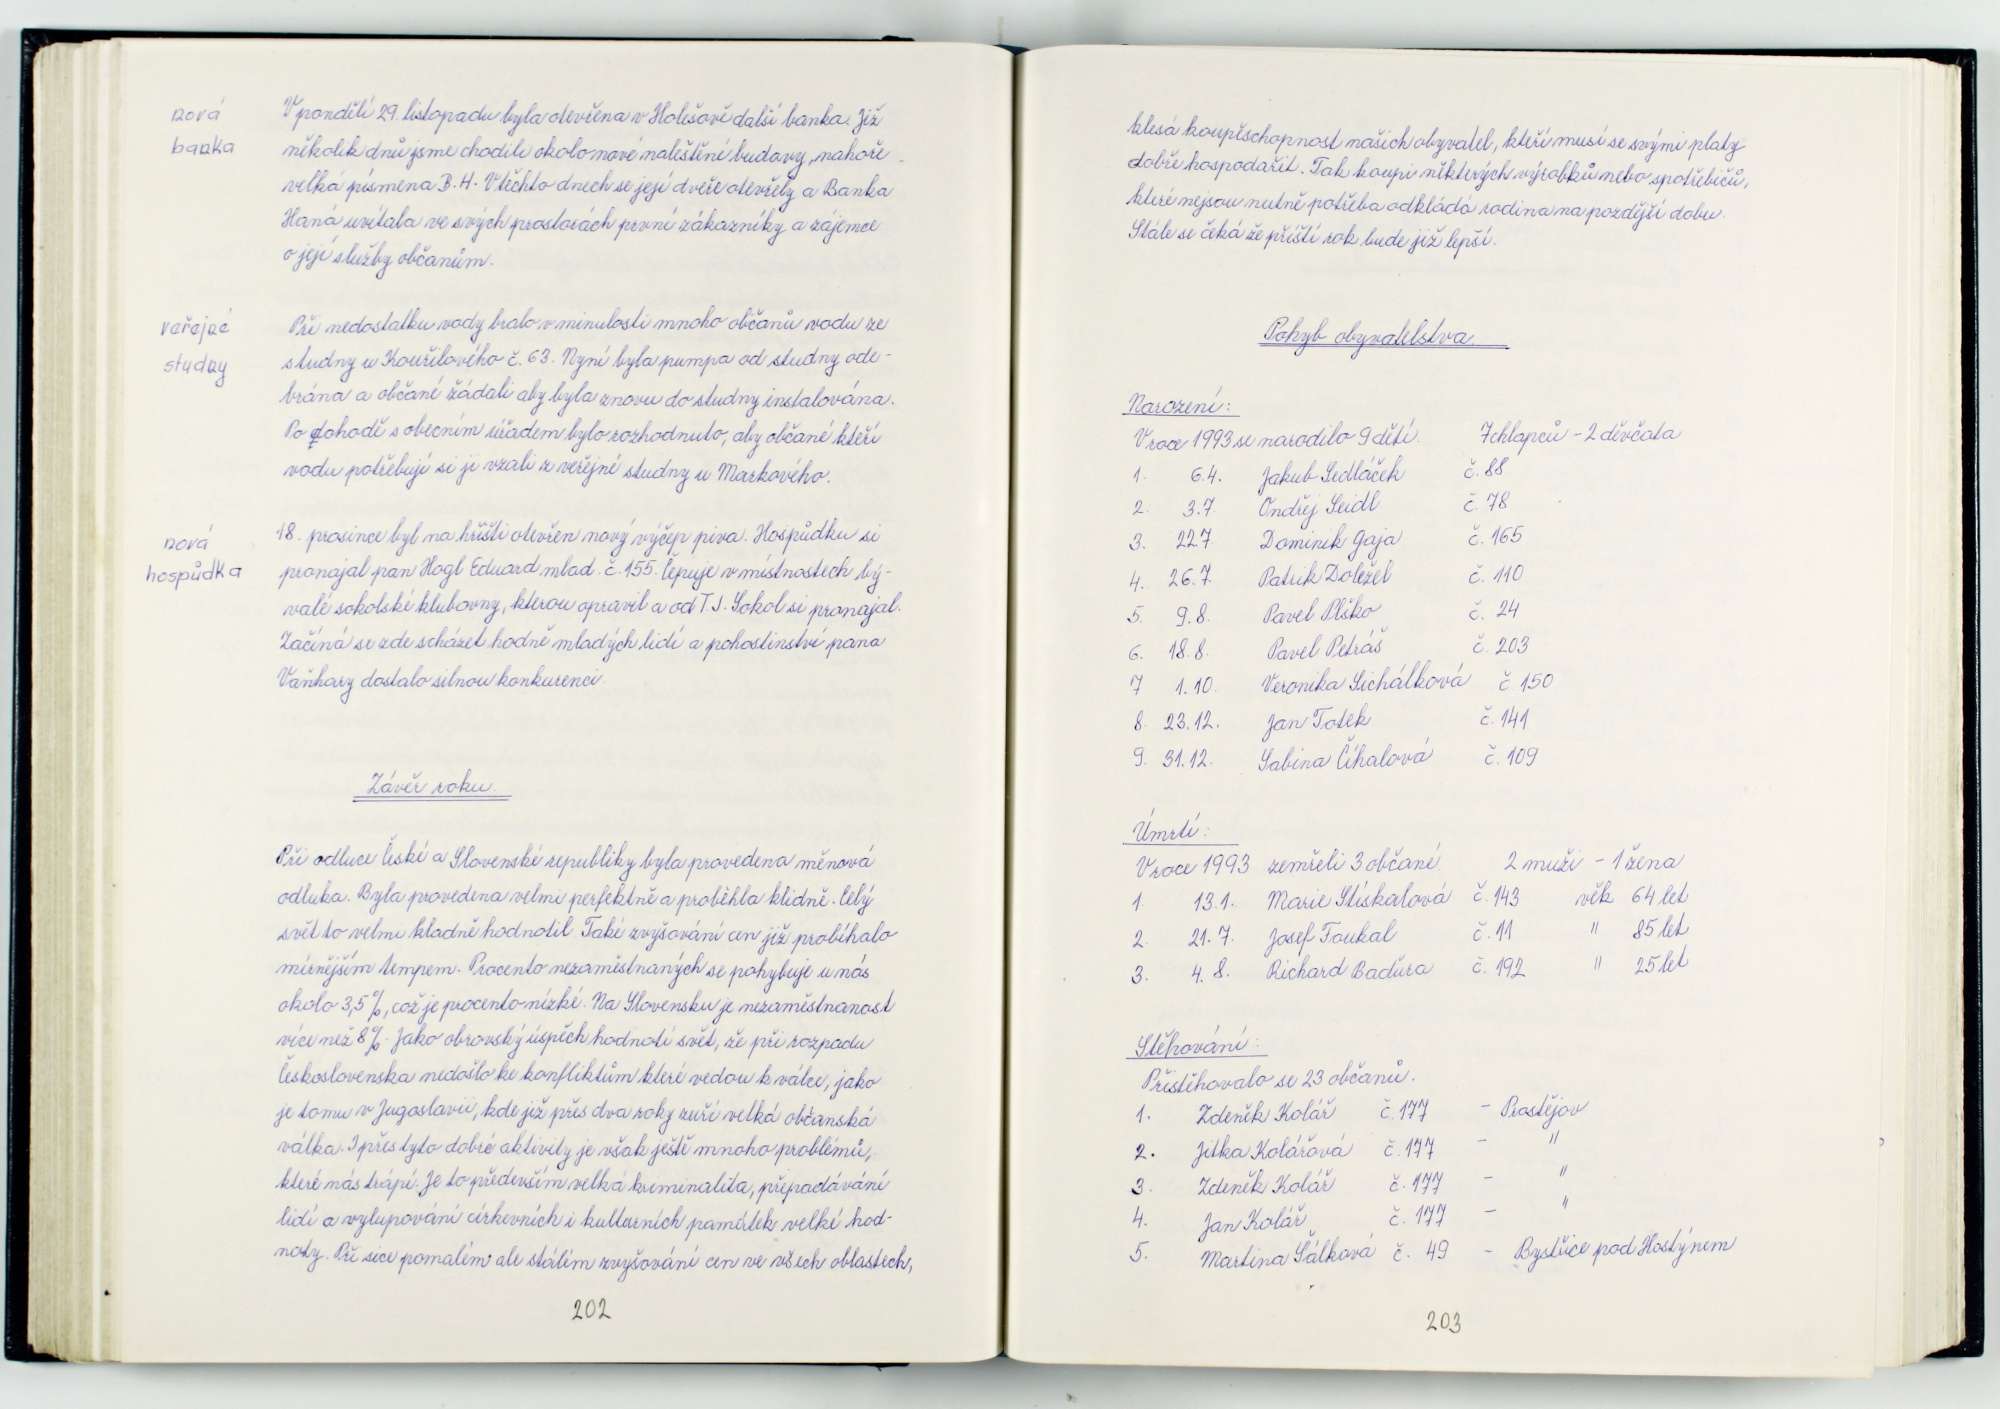 nová
banka
V pondělí 29. listopadu byla otevřena v Holešově další banka. Již
několik dnů jsme chodili okolo nově naleštěné budovy, nahoře
velká písmena B.H. V těchto dnech se její dveře otevřely a Banka
Haná uvítala ve svých prostorách první zákazníky a zájemce
o její služby občanům.
veřejné
studny
Při nedostatku vody bralo v minulosti mnoho občanů vodu ze
studny u Kouřilového č. 63. Nyní byla pumpa od studny ode-
brána a občané žádali aby byla znovu do studny instalována.
Po dohodě s obecním úřadem bylo rozhodnuto, aby občané kteří
vodu potřebují si ji vzali z veřejné studny u Markového.
nová
hospůdka
18. prosince byl na hřišti otevřen nový výčep piva. Hospůdku si
pronajal pan Hogl Eduard mlad. č. 155. Čepuje v místnostech bý-
valé sokolské klubovny, kterou opravil a od T.J. Sokol si pronajal.
Začíná se zde scházet hodně mladých lidí a pohostinství pana
Vaňhary dostalo silnou konkurenci.
Závěr roku.
Při odluce České a Slovenské republiky byla provedena měnová
odluka. Byla provedena velmi perfektně a proběhla klidně. Celý
svět to velmi kladně hodnotil. Také zvyšování cen již probíhalo
mírnějším tempem. Procento nezaměstnaných se pohybuje u nás
okolo 3,5%, což je procento nízké. Na Slovensku je nezaměstnanost
více než 8%. Jako obrovský úspěch hodnotí svět, že při rozpadu
Československa nedošlo ke konfliktům které vedou k válce, jako
je tomu v Jugoslavii, kde již přes dva roky zuří velká občanská
válka. I přes tyto dobré aktivity je však ještě mnoho problémů,
které nás trápí. Je to především velká kriminalita, přepadávání
lidí a vylupování církevních i kulturních památek velké hod-
noty. Při sice pomalém ale stálém zvyšování cen ve všech oblastech,
202
klesá koupěschopnost našich obyvatel, kteří musí se svými platy
dobře hospodařit. Tak koupi některých výrobků nebo spotřebičů,
které nejsou nutně potřeba odkládá rodina na pozdější dobu.
Stále se čeká že příští rok bude již lepší.
Pohyb obyvatelstva.
Narození:
V roce 1993 se narodilo 9 dětí. 7 chlapců - 2 děvčata
1. 6.4. Jakub Sedláček č. 88
2. 3.7. Ondřej Seidl č. 78
3. 22.7 Dominik Gaja č. 165
4. 26.7. Patrik Doležel č. 110
5. 9.8. Pavel Plško č. 24
6. 18.8. Pavel Petráš č. 203
7 1.10. Veronika Sichálková č. 150
8. 23.12. Jan Totek č. 141
9. 31.12. Sabina Číhalová č. 109
Úmrtí:
V roce 1993 zemřeli 3 občané. 2 muži - 1 žena
1. 13.1. Marie Stískalová č. 143 věk 64 let
2. 21.7. Josef Toukal č. 11 " 85 let
3. 4.8. Richard Baďura č. 192 " 25 let
Stěhování:
Přistěhovalo se 23 občanů.
1. Zdeněk Kolář č. 177 - Prostějov
2. Jitka Kolářová č. 177 - "
3. Zdeněk Kolář č. 177 - "
4. Jan Kolář č. 177 - "
5. Martina Šálková č. 49 - Bystřice pod Hostýnem
203